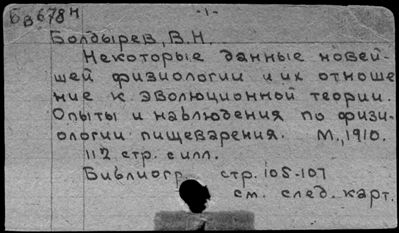 Бв678н -1-
Болдырев, В.Н.
Некоторые данные новей-
шей физиологии и их отноше
ние к эволюционной теории.
Опыты и наблюдения по физи-
ологии пищеварения. М., 1910.
112 стр. с илл.
Библиогр. стр. 105-107
см. след. карт.